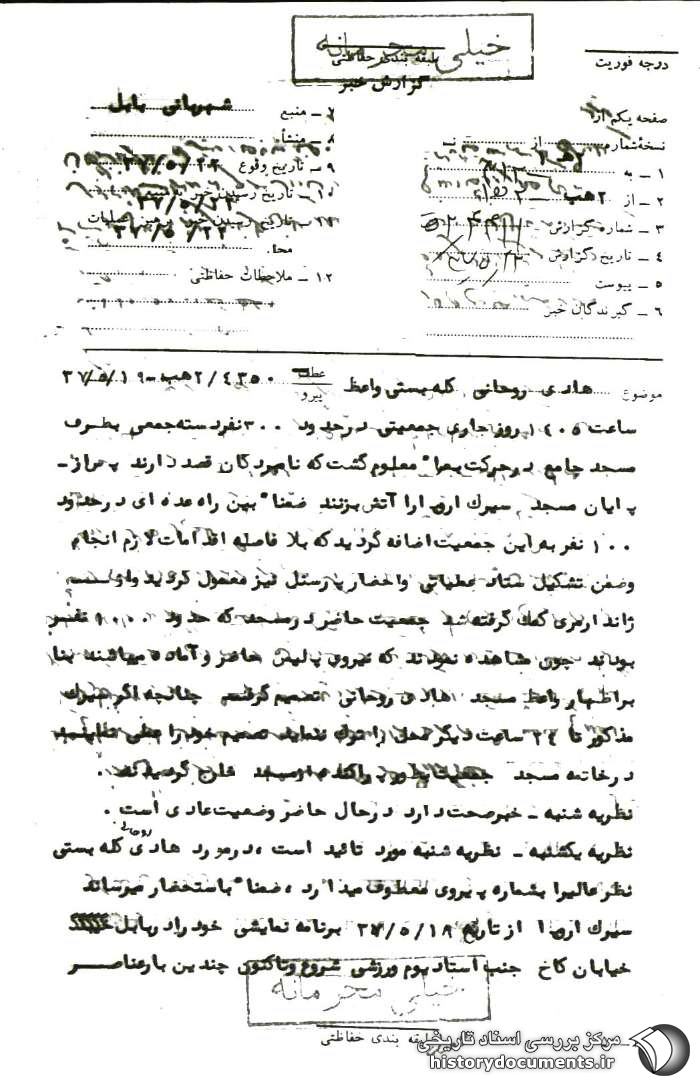 خیلی محرمانه
طبقه بندی حفاظتی
گزارش خبر
درجه فوریت
صفحه یکم از
نسخه شماره از
۱ ـ به
۲ ـ از ۲هب
۳ ـ شماره گزارش
۴ ـ تاریخ گزارش
۵ ـ پیوست
۶ ـ گیرندگان خبر
۷ ـ منبع شهربانی بابل
۸ ـ منشأ
۹ ـ تاریخ وقوع ۳۷/۵/۲۲
۱۰ ـ تاریخ رسیدن خبر ۳۷/۵/۲۲
تاریخ رسیدن خبر عملیات ۳۷/۵/۲۲
محل
۱۲ ـ ملاحظات حفاظتی
موضوع هادی روحانی کله بستی واعظ عطف پیرو ۲/۴۳۵۰هب-۳۷/۵/۱۹
ساعت ۱۴۰۵ روز جاری جمعیتی در حدود ۳۰۰ نفر دسته جمعی بطرف
مسجد جامع در حرکت بعدا" معلوم گشت که نامبردگان قصد دارند پس از ـ
پایان مسجد سیرک اروپا را آتش بزنند ضمنا" بین راه عده ای در حدود
۱۰۰ نفر به این جمعیت اضافه گردید که بلا فاصله اقدامات لازم انجام
وضمن تشکیل ستاد عملیاتی واحضار پرسنل نیز معمول گردید و از
ژاندارمری کمک گرفته شد جمعیت حاضر در مسجد که حدود ۱۰۰۰ نفر
بودند چون مشاهده نمودند که نیروی پلیس حاضر و آماده میباشند بنا
بر اظهار واعظ مسجد هادی روحانی تصمیم گرفتند چنانچه اگر سیرک
مذکور تا ۲۴ ساعت دیگر محل را ترک ننماید تصمیم خود را عملی نمایند
در خاتمه مسجد جمعیت بطور پراکنده از مسجد خارج گردیدند .
نظریه شنبه ـ خبر صحت دارد در حال حاضر وضعیت عادی است .
نظریه یکشنبه ـ نظریه شنبه مورد تائید است ، در مورد هادی روحانی کله بستی
نظر عالیرا بشماره پیروی معطوف میدارد ، ضمنا" باستحضار میرساند
سیرک اروپا از تاریخ ۳۷/۵/۱۸ برنامه نمایشی خود را در بابل
خیابان کاخ جنب استادیوم ورزشی شروع و تاکنون چندین بار عناصر
خیلی محرمانه
طبقه بندی حفاظتی
مرکز بررسی اسناد تاریخی
historydocuments.ir